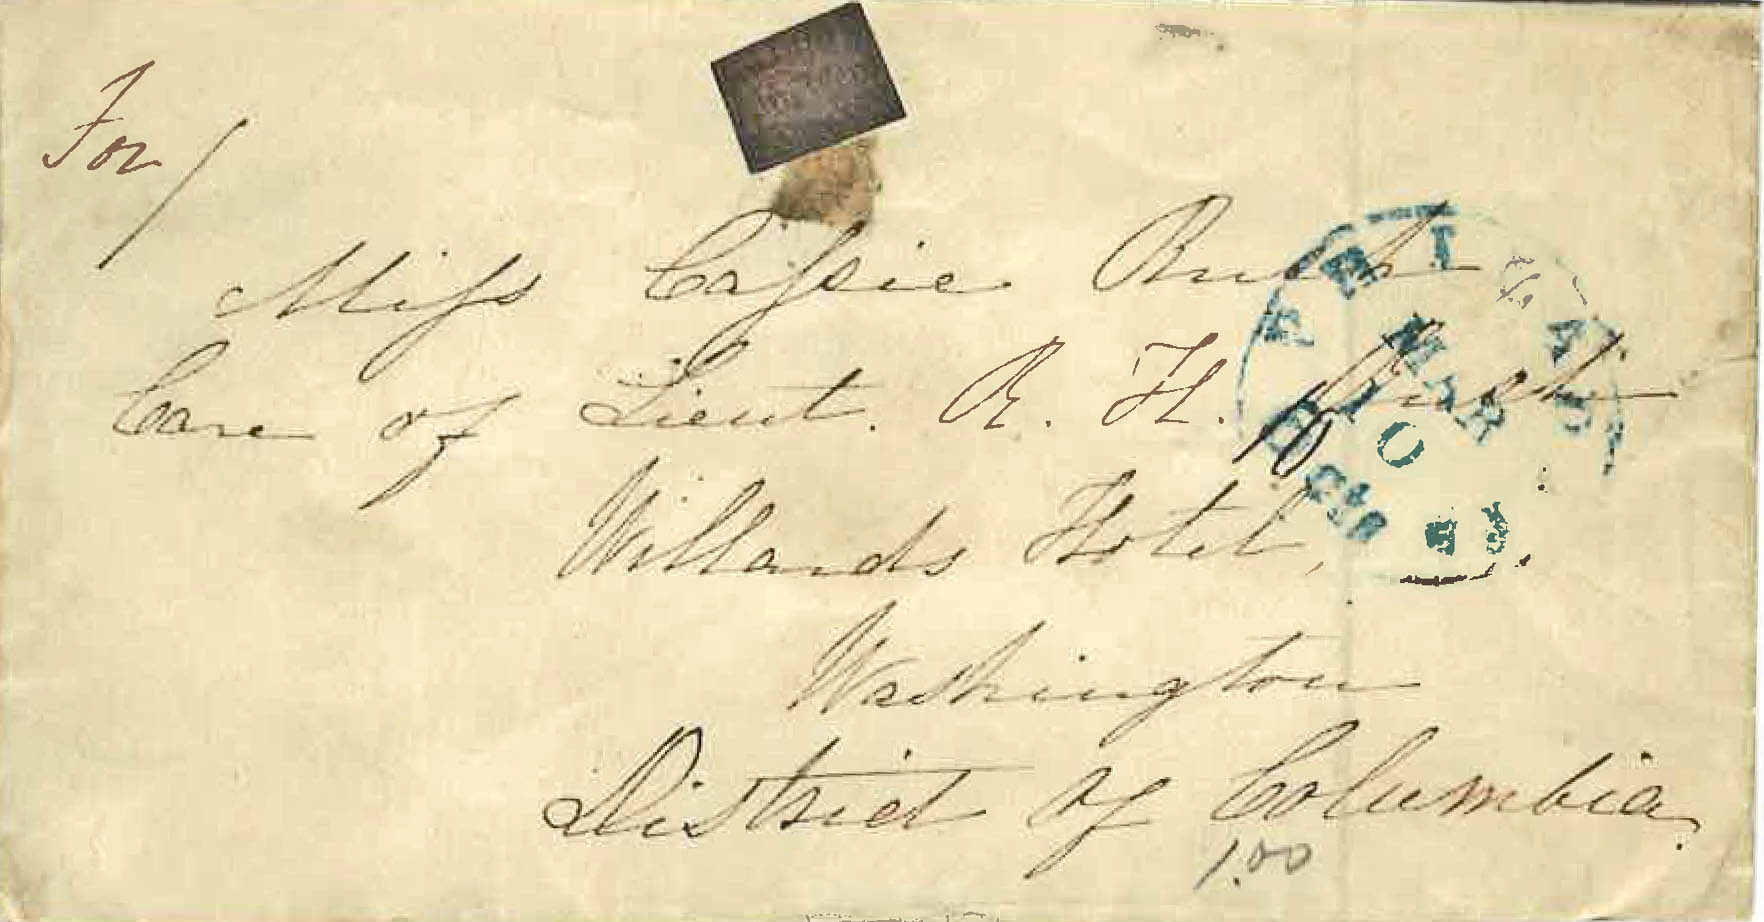 For/
Miss Cassie Rush
Care of Lieut. R. H. Rush
Willards Hotel,
Washington
District of Columbia.
1.00
MAR